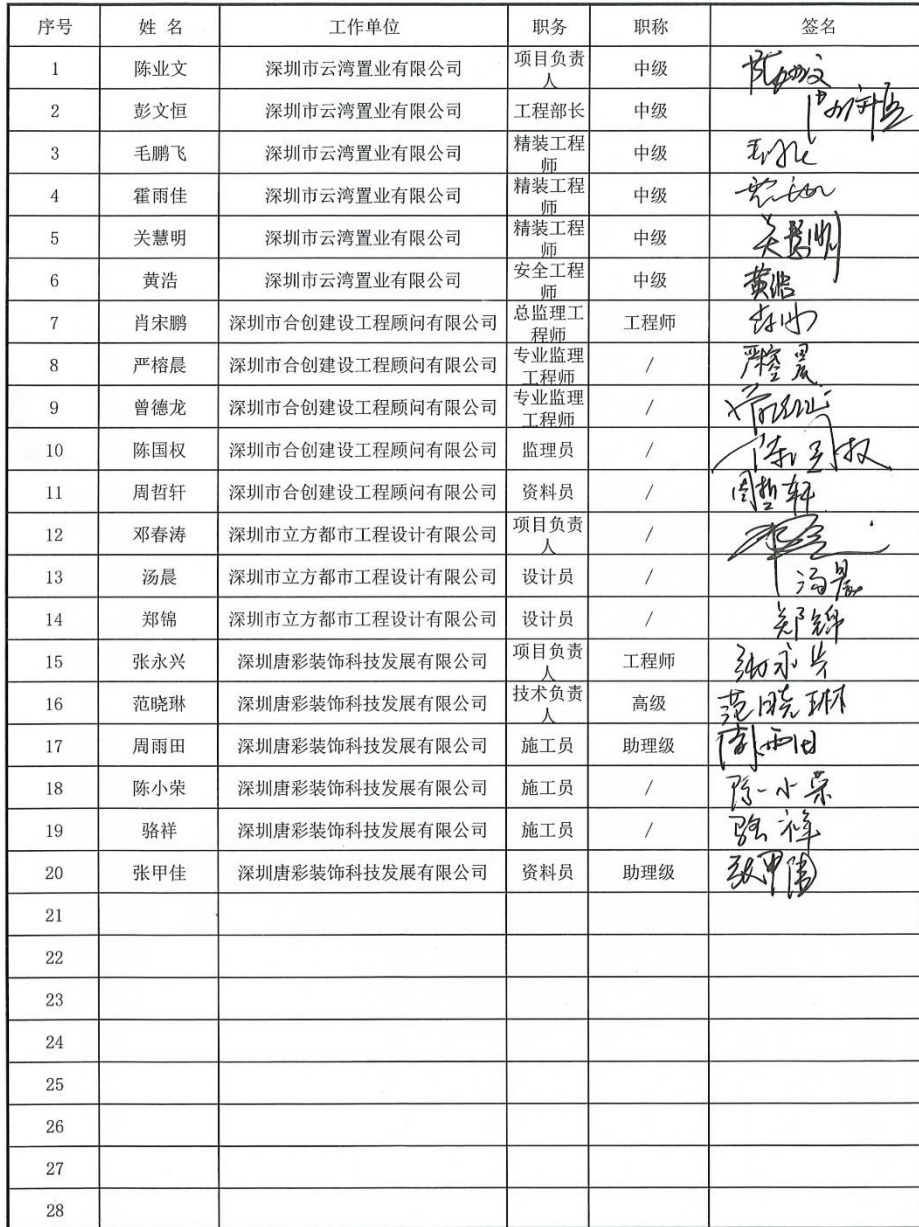 序号 姓 名 工作单位 职务 职称 签名
1 陈业文 深圳市云湾置业有限公司 项目负责人 中级
2 彭文恒 深圳市云湾置业有限公司 工程部长 中级
3 毛鹏飞 深圳市云湾置业有限公司 精装工程师 中级
4 霍雨佳 深圳市云湾置业有限公司 精装工程师 中级
5 关慧明 深圳市云湾置业有限公司 精装工程师 中级 关慧明
6 黄浩 深圳市云湾置业有限公司 安全工程师 中级 黄浩
7 肖宋鹏 深圳市合创建设工程顾问有限公司 总监理工程师 工程师
8 严榕晨 深圳市合创建设工程顾问有限公司 专业监理工程师 / 严榕晨
9 曾德龙 深圳市合创建设工程顾问有限公司 专业监理工程师 /
10 陈国权 深圳市合创建设工程顾问有限公司 监理员 / 陈国权
11 周哲轩 深圳市合创建设工程顾问有限公司 资料员 / 周哲轩
12 邓春涛 深圳市立方都市工程设计有限公司 项目负责人 /
13 汤晨 深圳市立方都市工程设计有限公司 设计员 / 汤晨
14 郑锦 深圳市立方都市工程设计有限公司 设计员 / 郑锦
15 张永兴 深圳唐彩装饰科技发展有限公司 项目负责人 工程师 张永兴
16 范晓琳 深圳唐彩装饰科技发展有限公司 技术负责人 高级 范晓琳
17 周雨田 深圳唐彩装饰科技发展有限公司 施工员 助理级 周雨田
18 陈小荣 深圳唐彩装饰科技发展有限公司 施工员 / 陈小荣
19 骆祥 深圳唐彩装饰科技发展有限公司 施工员 / 骆祥
20 张甲佳 深圳唐彩装饰科技发展有限公司 资料员 助理级 张甲佳
21
22
23
24
25
26
27
28